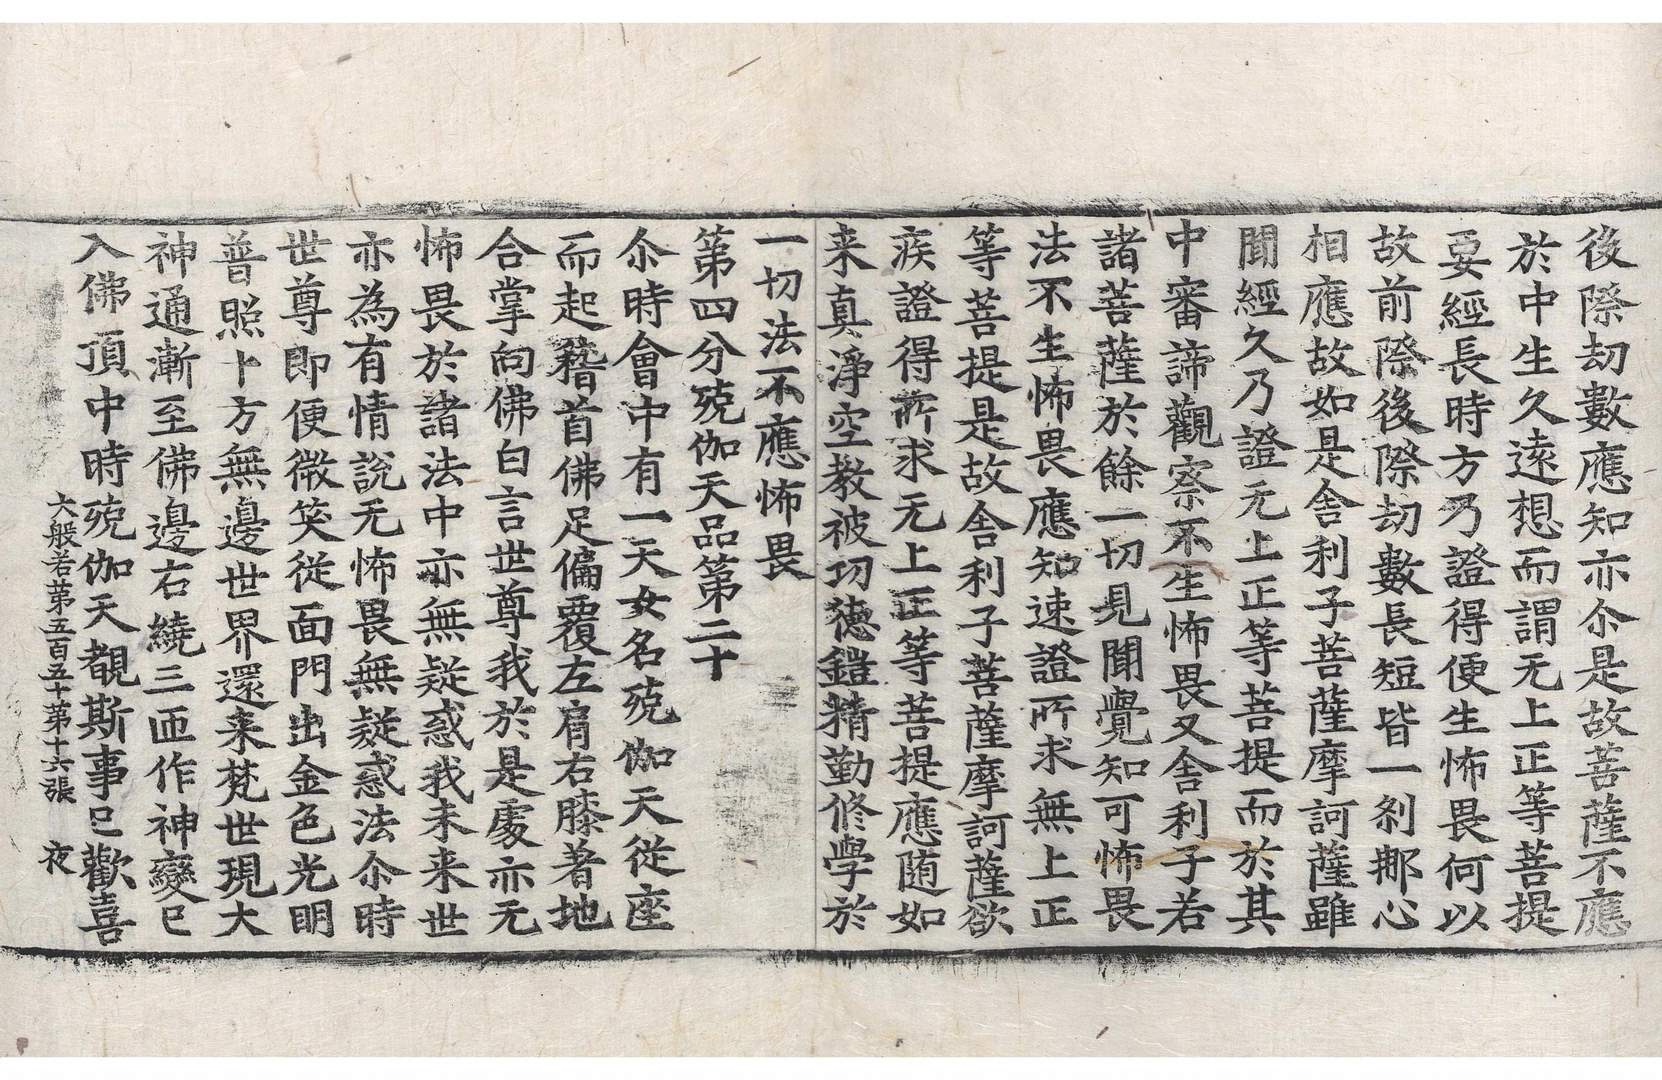 後際劫數應知亦尒是故菩薩不應
於中生久遠想而謂无上正等菩提
要經長時方乃證得便生怖畏何以
故前際後際劫數長短皆一刹那心
相應故如是舍利子菩薩摩訶薩雖
聞經久乃證无上正等菩提而於其
中審諦觀察不生怖畏又舍利子若
諸菩薩於餘一切見聞覺知可怖畏
法不生怖畏應知速證所求無上正
等菩提是故舍利子菩薩摩訶薩欲
疾證得所求无上正等菩提應随如
来真淨空教被功德鎧精勤修學於
一切法不應怖畏
第四分殑伽天品第二十
尒時會中有一天女名殑伽天從座
而起稽首佛足偏覆左肩右膝著地
合掌向佛白言世尊我於是處亦无
怖畏於諸法中亦無疑惑我未来世
亦為有情說无怖畏無疑惑法尒時
世尊即便微笑從面門出金色光明
普照十方無邊世界還来梵世現大
神通漸至佛邊右繞三匝作神變已
入佛頂中時殑伽天覩斯事已歡喜
大般若第五百五十第十六張 夜